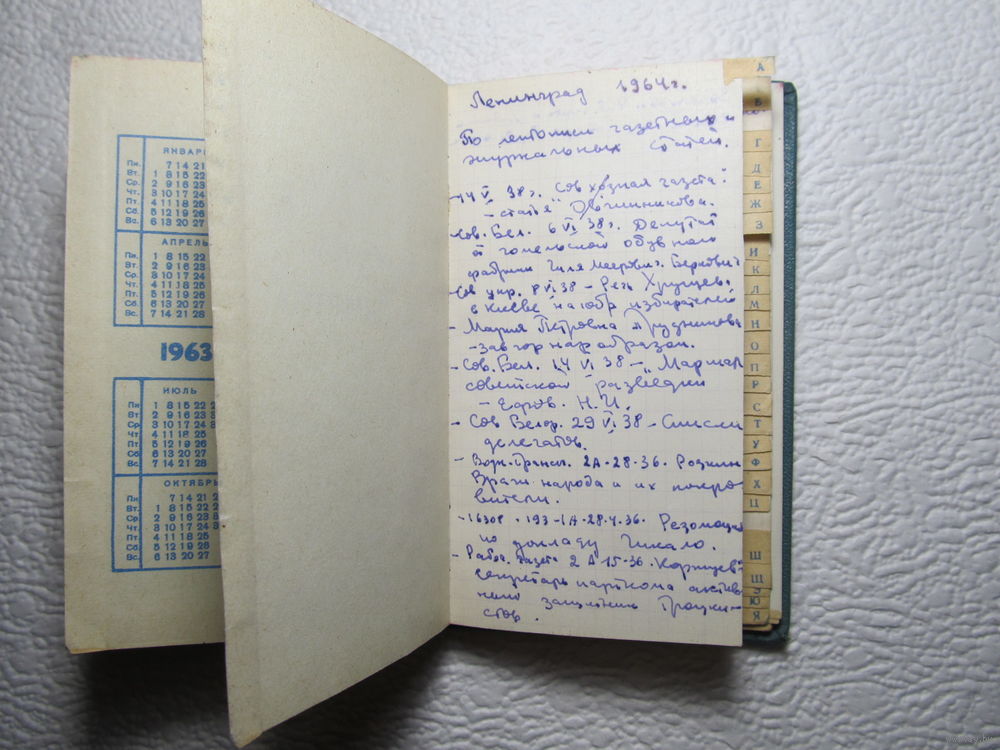 ЯНВАРЬ
Пн. 7 14 21
Вт. 1 8 15 22
Ср. 2 9 16 23
Чт. 3 10 17 24
Пт. 4 11 18 25
Сб. 5 12 19 26
Вс. 6 13 20 27
АПРЕЛЬ
Пн. 1 8 15 22
Вт. 2 9 16 23
Ср. 3 10 17 24
Чт. 4 11 18 25
Пт. 5 12 19 26
Сб. 6 13 20 27
Вс. 7 14 21 28
1963
ИЮЛЬ
Пн 1 8 15 22 2
Вт 2 9 16 23 3
Ср. 3 10 17 24 3
Чт. 4 11 18 25
Пт. 5 12 19 26
Сб. 6 13 20 27
Вс. 7 14 21 28
ОКТЯБРЬ
Пн. 7 14 21 2
Вт. 1 8 15 22 2
Ср. 2 9 16 23 3
Чт. 3 10 17 24 3
Пт. 4 11 18 25
Сб. 5 12 19 26
Вс. 6 13 20 27
Ленинград 1964 г.
По летописи газетных и
журнальных статей.
-14 V 38 г. Совхозная газета:
- статья Овчинникова.
- Сов. Бел. 6 VI 38 г. Депутат
от гомельской обувной
фабрики Меерович. Беркович
- Сов укр. 8 VI 38 - Речь Хрущева
в Киеве на собр избирателей
- Мария Петровна Прудникова
- зав гор нар образов.
- Сов. Бел. 14 VI 38 - "Маршал
советской разведки
- Ежов. Н.И.
- Сов Белор. 29 VI 38 - Списки
делегатов.
- Водн. трансп. 2А-28-36. Родкин
Враги народа и их покро-
вители.
-16308 - 193-1А-28.4.36. Резолюция
по докладу Гикало.
- Рабоч. газета 2 А-15-36. Корницев
секретарь парткома актив-
ный защитник Троцки-
стов.
А
Б
Г
Д
Е
Ж
З
И
К
Л
М
Н
О
П
Р
С
Т
У
Ф
Х
Ц
Ш
Щ
Э
Ю
Я